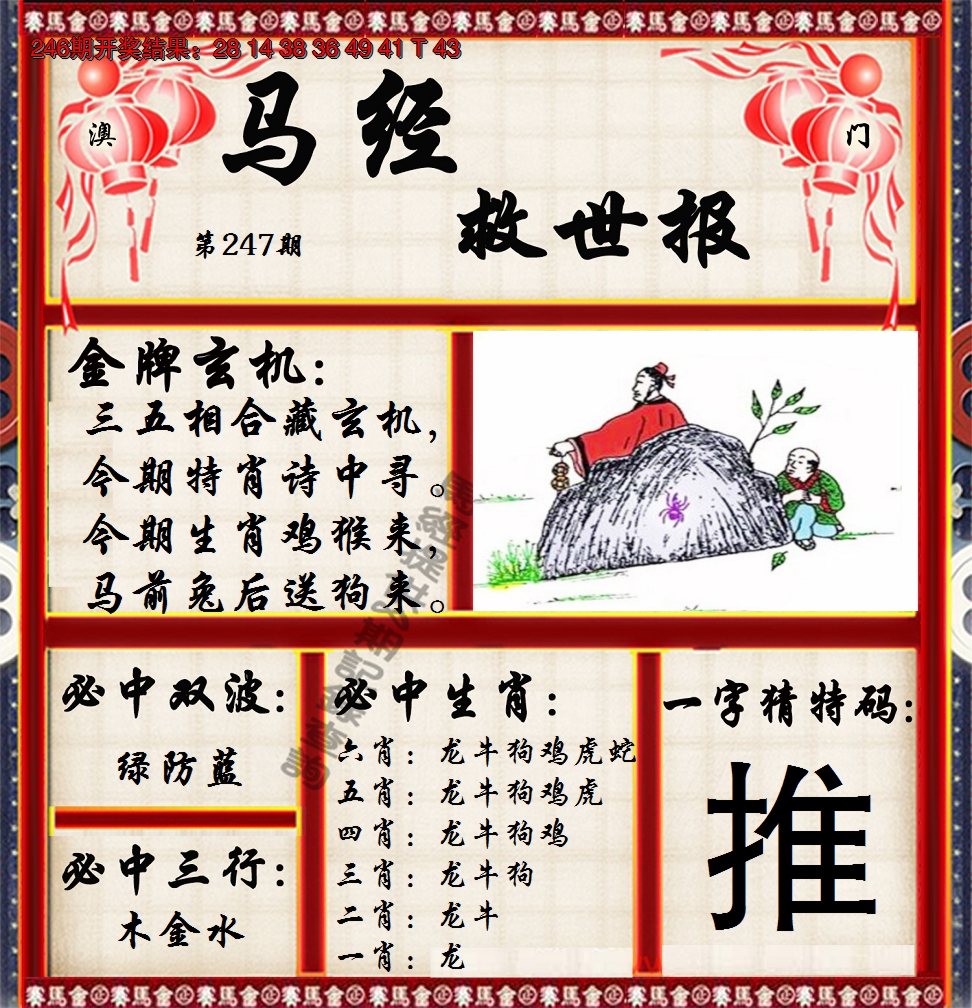 賽馬會
246期开奖结果：28 14 38 36 49 41 T 43
澳
门
马经
救世报
第247期
金牌玄机：
三五相合藏玄机，
今期特肖诗中寻。
今期生肖鸡猴来，
马前兔后送狗来。
必中双波：
绿防蓝
必中三行：
木金水
必中生肖：
六肖：龙牛狗鸡虎蛇
五肖：龙牛狗鸡虎
四肖：龙牛狗鸡
三肖：龙牛狗
二肖：龙牛
一肖：龙
一字猜特码：
推